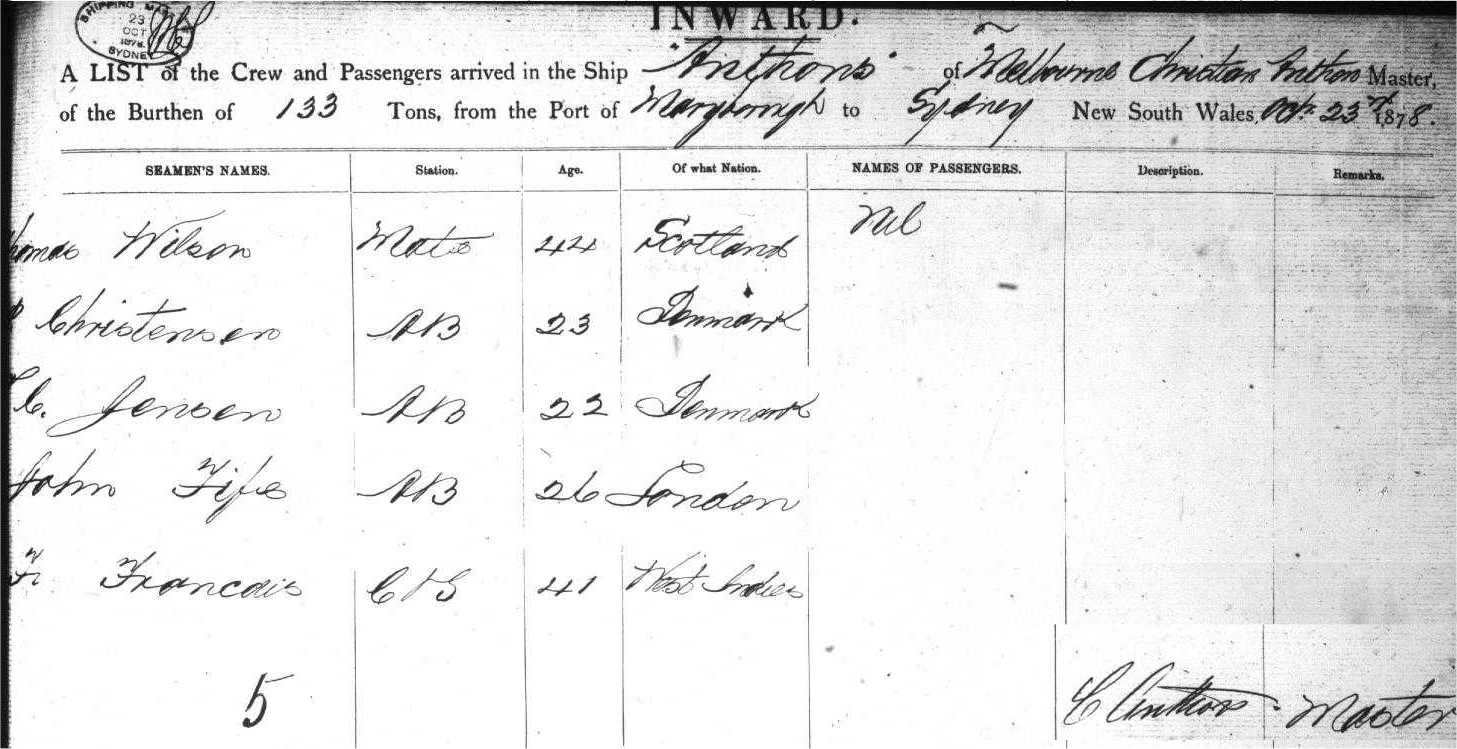 SHIPPING MAS
23
OCT
1878
SYDNEY
INWARD.
A LIST of the Crew and Passengers arrived in the Ship "Anthons" of Melbourne Christian Anthons Master,
of the Burthen of 133 Tons, from the Port of Maryborough to Sydney New South Wales, Oct. 23rd 1878.
SEAMEN'S NAMES. Station. Age. Of what Nation. NAMES OF PASSENGERS. Description. Remarks.
homas Wilson Mate 44 Scotland Nil
Christensen AB 23 Denmark
C. Jensen AB 22 Denmark
John Fife AB 26 London
Fr Francois C&S 41 West Indies
5
C Anthons Master